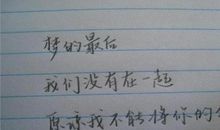 梦的最后
我们没有在一起
原谅我不能将你的